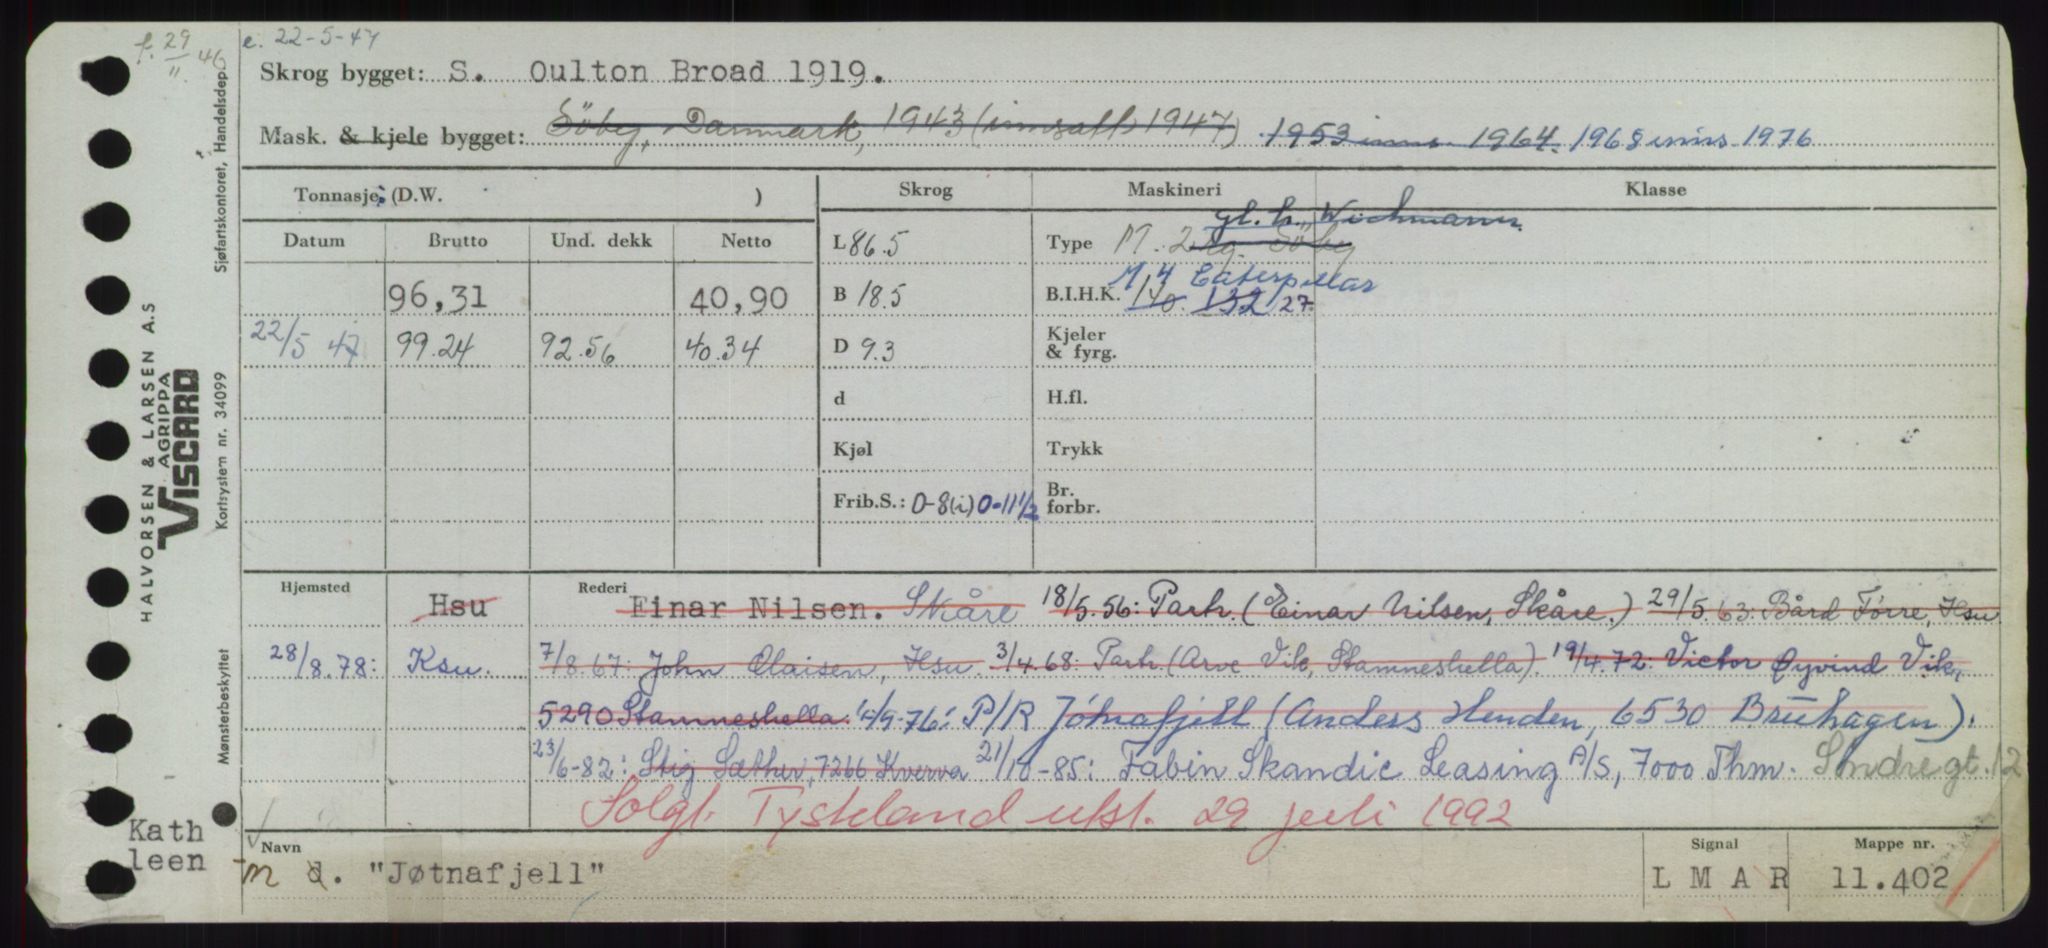 f. 29/11 46 e. 22-5-47
Skrog bygget: S. Oulton Broad 1919.
Mask. & kjele bygget: Söby, Danmark, 1943 (innsatt 1947) 1953 inns. 1964. 1968 inns. 1976
Tonnasje (D.W. ) Skrog Maskineri Klasse
gl. h. Wichmann
Datum Brutto Und. dekk Netto L 86.5 Type M. 2 Söby
M 4 Caterpillar
96,31 40,90 B 18.5 B.I.H.K. 140. 132 27
22/5 47 99.24 92.56 40.34 D 9.3 Kjeler & fyrg.
d H.fl.
Kjøl Trykk
Frib.S.: 0-8(i) 0-11½ Br. forbr.
Hjemsted Rederi
Hsu Einar Nilsen. Skåre 18/5.56: Partr. (Einar Nilsen, Skåre.) 29/5.63: Bård Tørre, Hsu
28/8.78: Ksu. 7/8.67: John Olaisen, Hsu. 3/4.68: Partr. (Arve Vik, Stamneshella). 19/4.72: Victor Øyvind Vik,
5290 Stamneshella. /9-76: P/R Jøtnafjell (Anders Henden, 6530 Bruhagen).
23/6-82: Stig Sæther, 7266 Kverva 21/10-85: Fabin Skandic Leasing A/S, 7000 Thm. Søndregt. 12
Solgt Tyskland utsl. 29 juli 1992
Navn Signal Mappe nr.
m d. "Jøtnafjell" L M A R 11.402
Kath
leen
HALVORSEN & LARSEN A.S
AGRIPPA
VISCARD
Sjøfartskontoret, Handelsdep.
Kortsystem nr. 34099
Mønsterbeskyttet